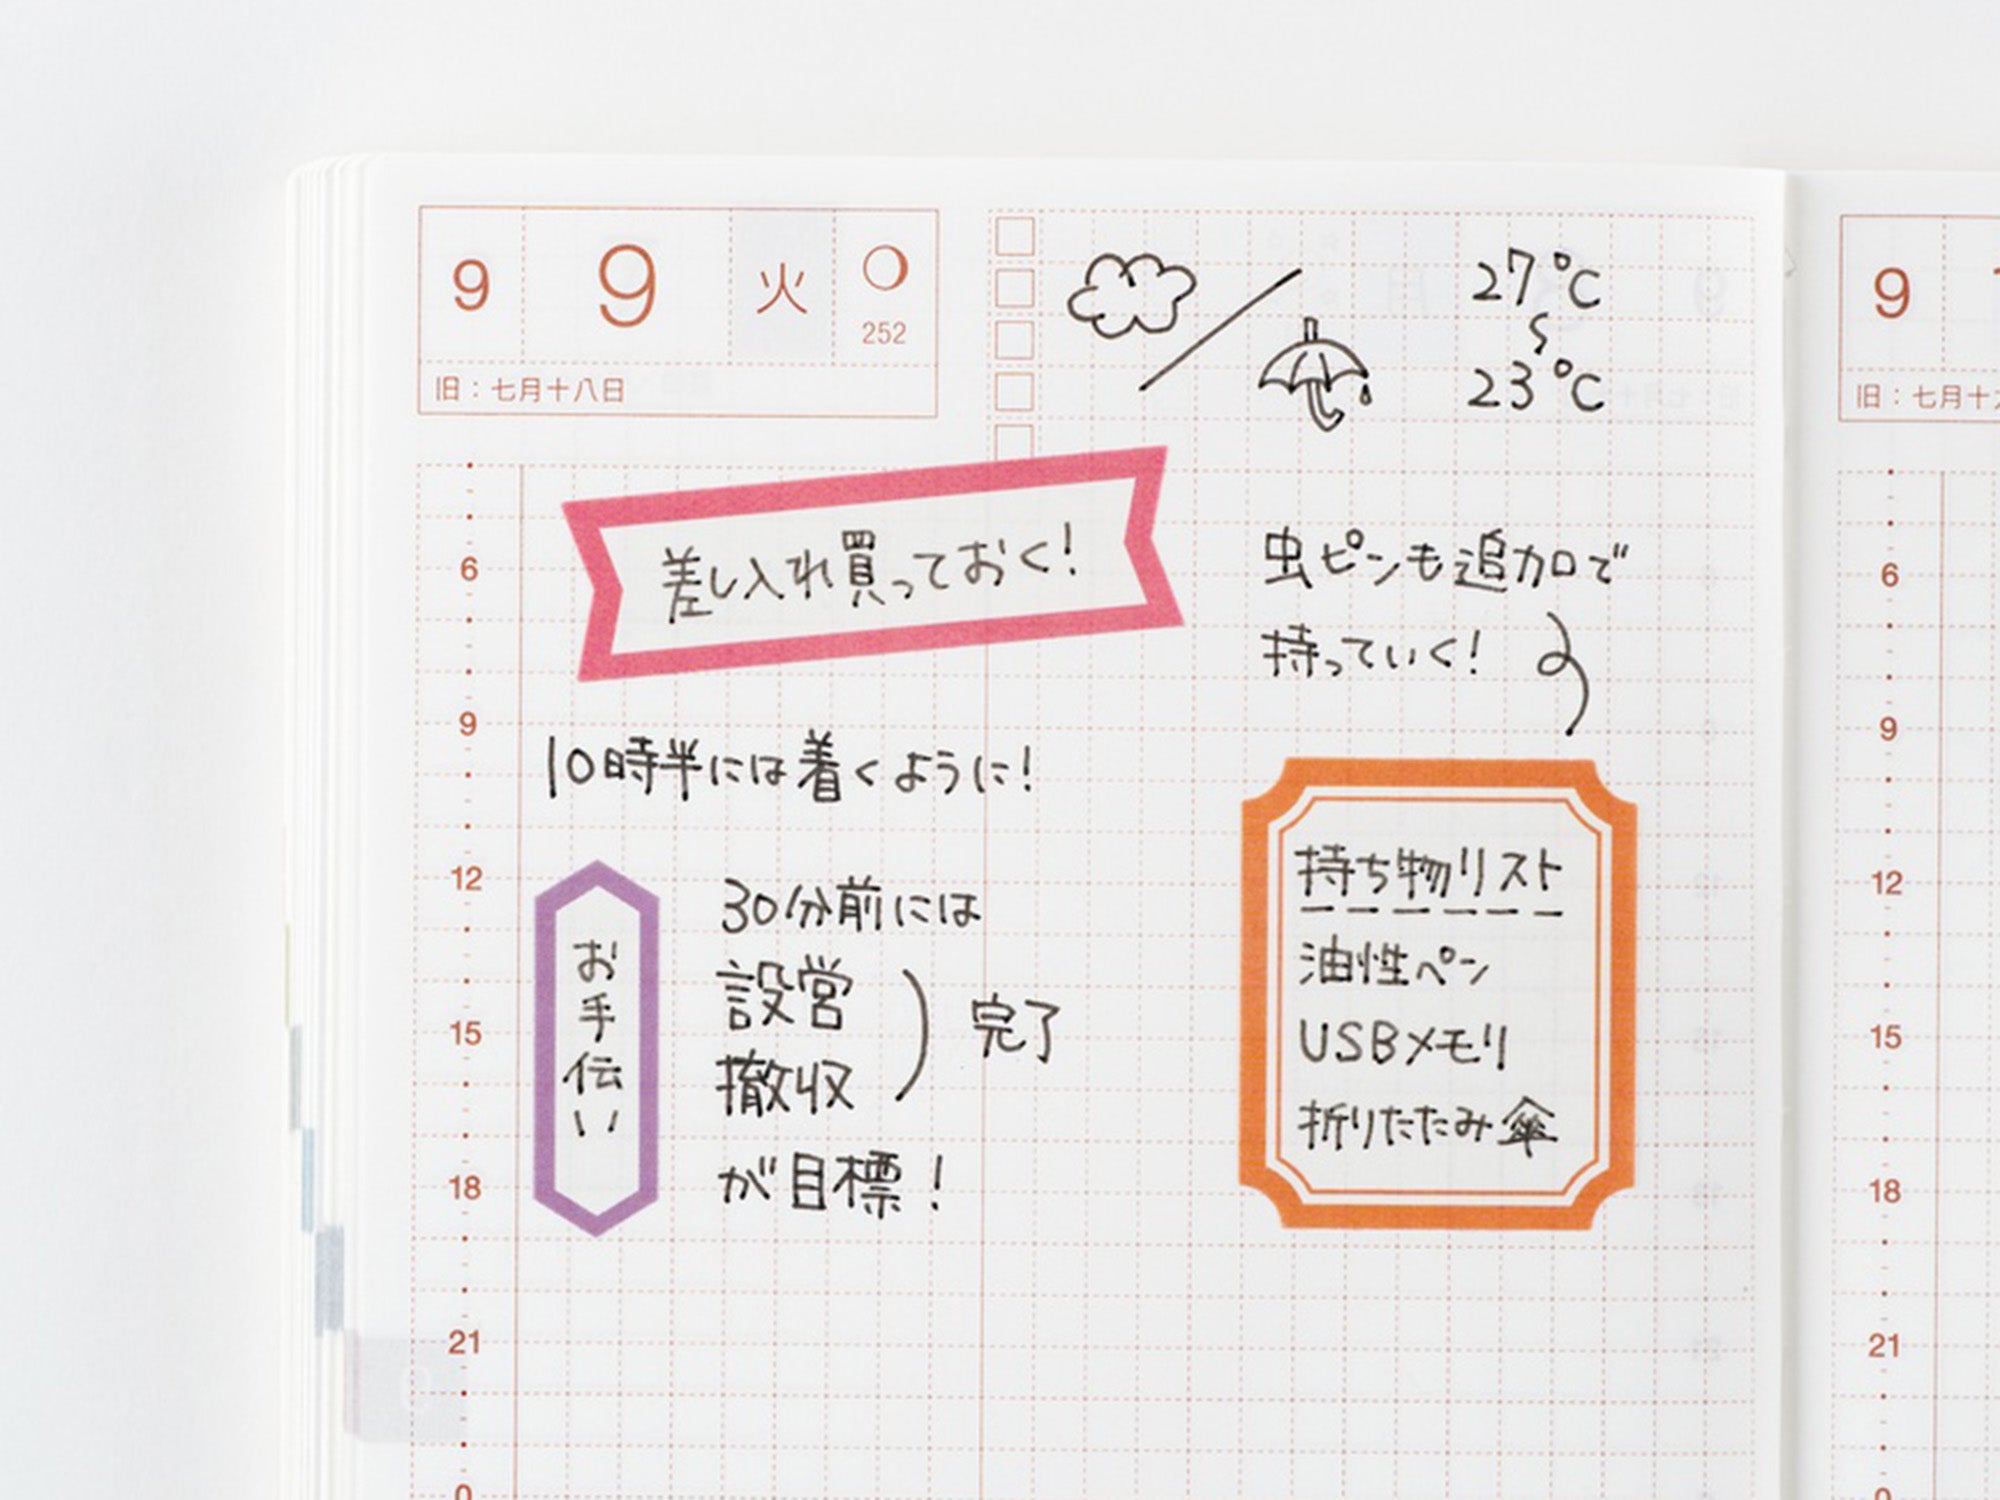 9 9 火
252
旧：七月十八日
27℃
〜
23℃
差し入れ買っておく！
虫ピンも追加で
持っていく！
10時半には着くように！
お手伝い
30分前には
設営
撤収
完了
が目標！
持ち物リスト
油性ペン
USBメモリ
折りたたみ傘
6
9
12
15
18
21
0
9
旧：七月十
6
9
12
15
18
21
0